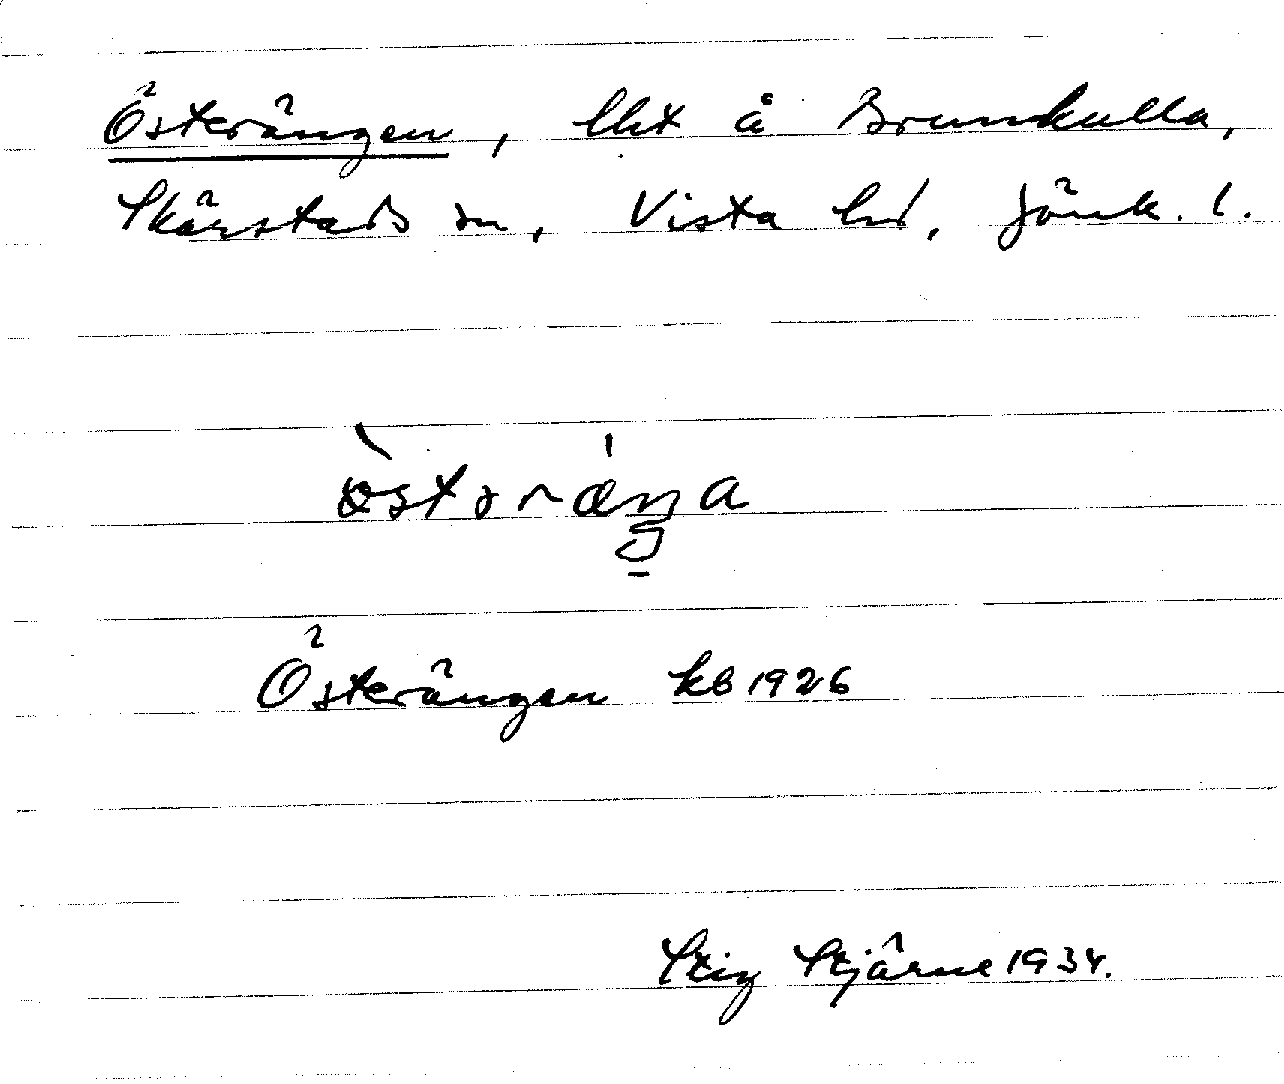 Österängen, lht å Brunkulla,
Skärstads sn, Vista hd, Jönk. l.
östəræŋa
Österängen kb 1926
Stig Stjärne 1934.